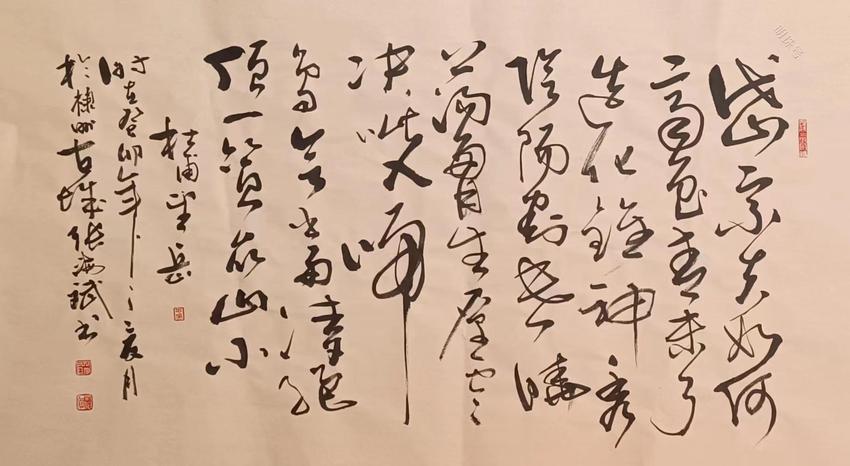 岱宗夫如何
齊魯青未了
造化鍾神秀
陰陽割昏曉
荡胸生層云
决眦入歸
鳥會當凌絕
頂一覽众山小
杜甫望岳
时在癸卯年之夏月
於州古城张海斌书